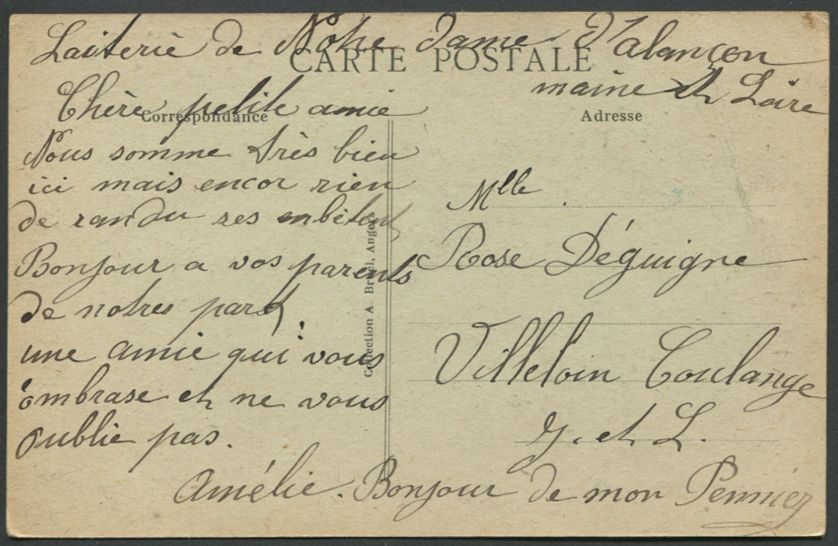 Laiterie de Notre dame d'alançon
maine et Loire
CARTE POSTALE
Correspondance
Adresse
Chère petite amie
Nous somme très bien
ici mais encor rien
de randu ses enbêtent
Bonjour a vos parents
de notres part
une amie qui vous
ombrase et ne vous
oublie pas.
Amélie. Bonjour de mon
Mlle.
Rose Déguigne
Villeloin Coulange
I. et L.
Collection A Bruel, Angers